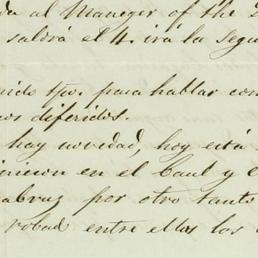 al Maneger of the
saldrá el 4. irá la Segu
nido tpo. para hablar con
os diferidos.
hay novedad, hoy está
en el Caul y
abruz por otro tanto
robad entre ellos los